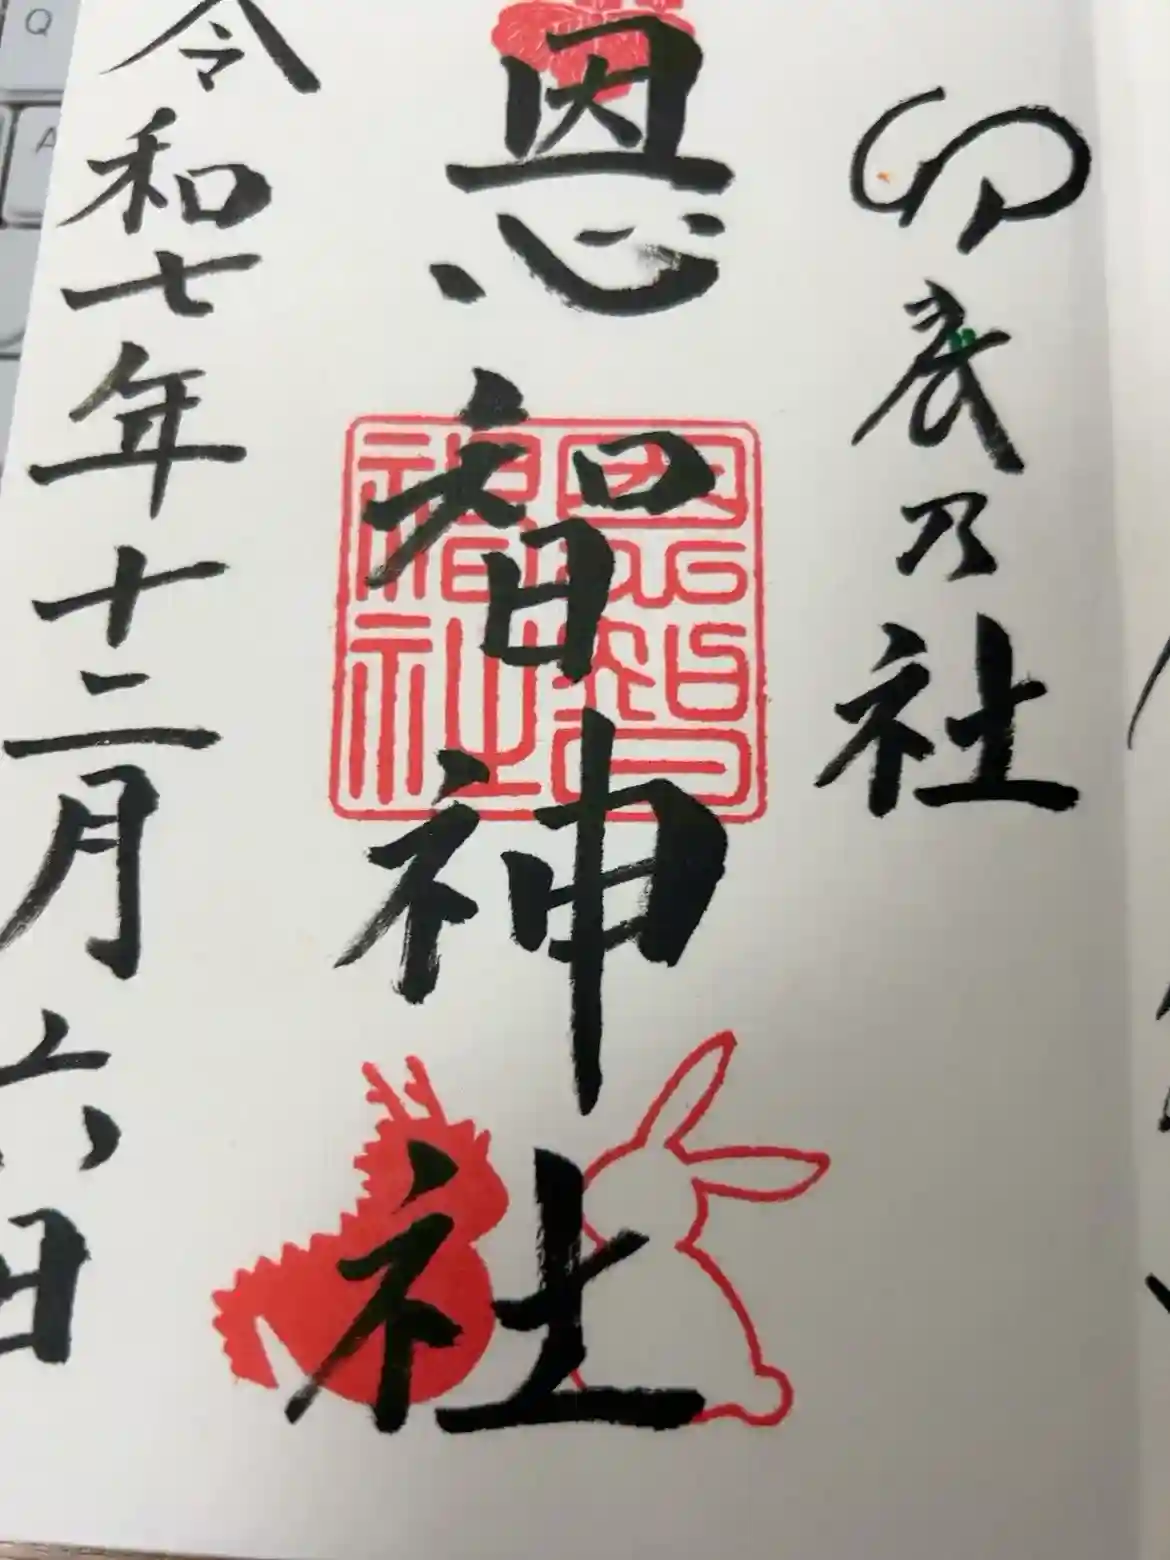 卯辰乃社
恩智神社
恩智神社
令和七年十二月六日
Q
A